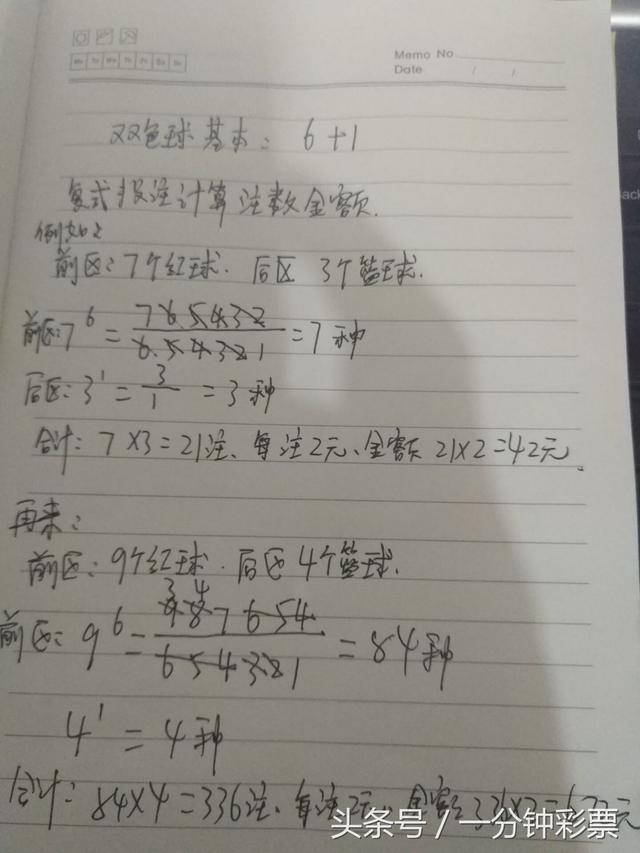 Memo No
Mo Tu We Th Fr Sa Su
Date / /
双色球基本: 6+1
复式投注计算注数金额.
例如:
前区:7个红球. 后区 3个篮球.
前区:7⁶ = 7 6 5 4 3 2 / 6 5 4 3 2 1 = 7种
后区:3¹ = 3/1 = 3种
合计: 7×3=21注、每注2元、金额 21×2=42元。
再来:
前区: 9个红球. 后区 4个篮球.
3 4
前区: 9⁶ = 9 8 7 6 5 4 / 6 5 4 3 2 1 = 84种
4¹ = 4种
合计: 84×4=336注、每注2元、金额:336×2=672元
头条号 / 一分钟彩票